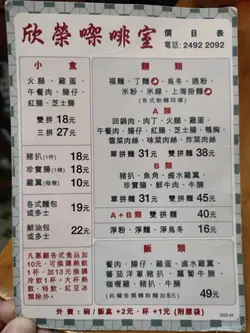 欣榮㗎啡室
價目表
電話: 2492 2092
小食
火腿、雞蛋、
午餐肉、腸仔、
紅腸、芝士腸
雙拼 18元
三拼 27元
豬扒(1件) 18元
珍寶腸(1條) 18元
雞翼(每隻) 10元
各式麵包
或多士 19元
鮮油包
或多士 22元
麵類
福麵、丁麵、烏冬、通粉、
米粉、米線、上海掛麵
(各式粉麵同價)
A類
回鍋肉、肉丁、火腿、雞蛋、
午餐肉、腸仔、紅腸、芝士腸、鴨胸、
雪菜肉絲、味菜肉絲、炸菜肉絲
單拼麵 31元 雙拼麵 38元
B類
豬扒、魚角、鹵水雞翼
珍寶腸、鮮牛肉、牛腩
單拼麵 31元 雙拼麵 45元
A+B類 雙拼麵 40元
淨麵、淨粉、淨烏冬 16元
飯類
餐肉、腸仔、雞蛋、鹵水雞翼
蕃茄洋蔥豬扒、蘿蔔牛腩
咖喱雞、豬扒、牛腩
49元
凡惠顧各式食品加
10元，可換購熱飲
1杯，加13元換購
凍飲1杯。大杯熱
外賣：碗/飯盒 +2元、杯 +1元 (附膠袋)